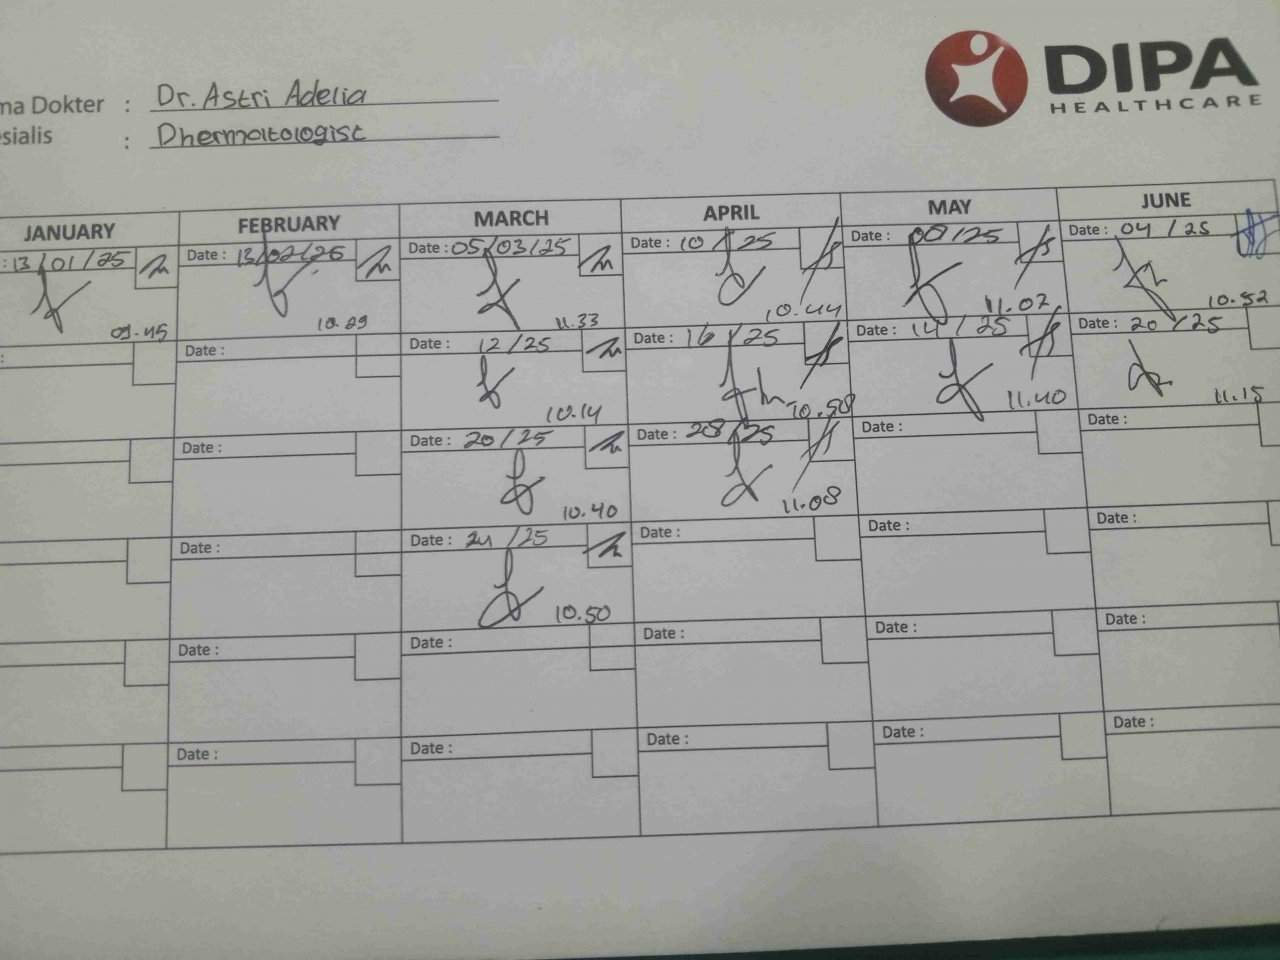 DIPA
HEALTHCARE
ma Dokter : Dr. Astri Adelia
esialis : Dhermatologist
JANUARY FEBRUARY MARCH APRIL MAY JUNE
: 13/01/25 Date : 13/02/25 Date : 05/03/25 Date : 10 / 25 Date : 08/25 Date : 04 / 25
09.45 10.29 11.33 10.44 11.02 10.52
: Date : Date : 12/25 Date : 16/25 Date : 14/25 Date : 20/25
10.14 10.58 11.40 11.15
Date : Date : 20/25 Date : 28/25 Date : Date :
10.40 11.08
Date : Date : 24/25 Date : Date : Date :
10.50
Date : Date : Date : Date : Date :
Date : Date : Date : Date : Date :